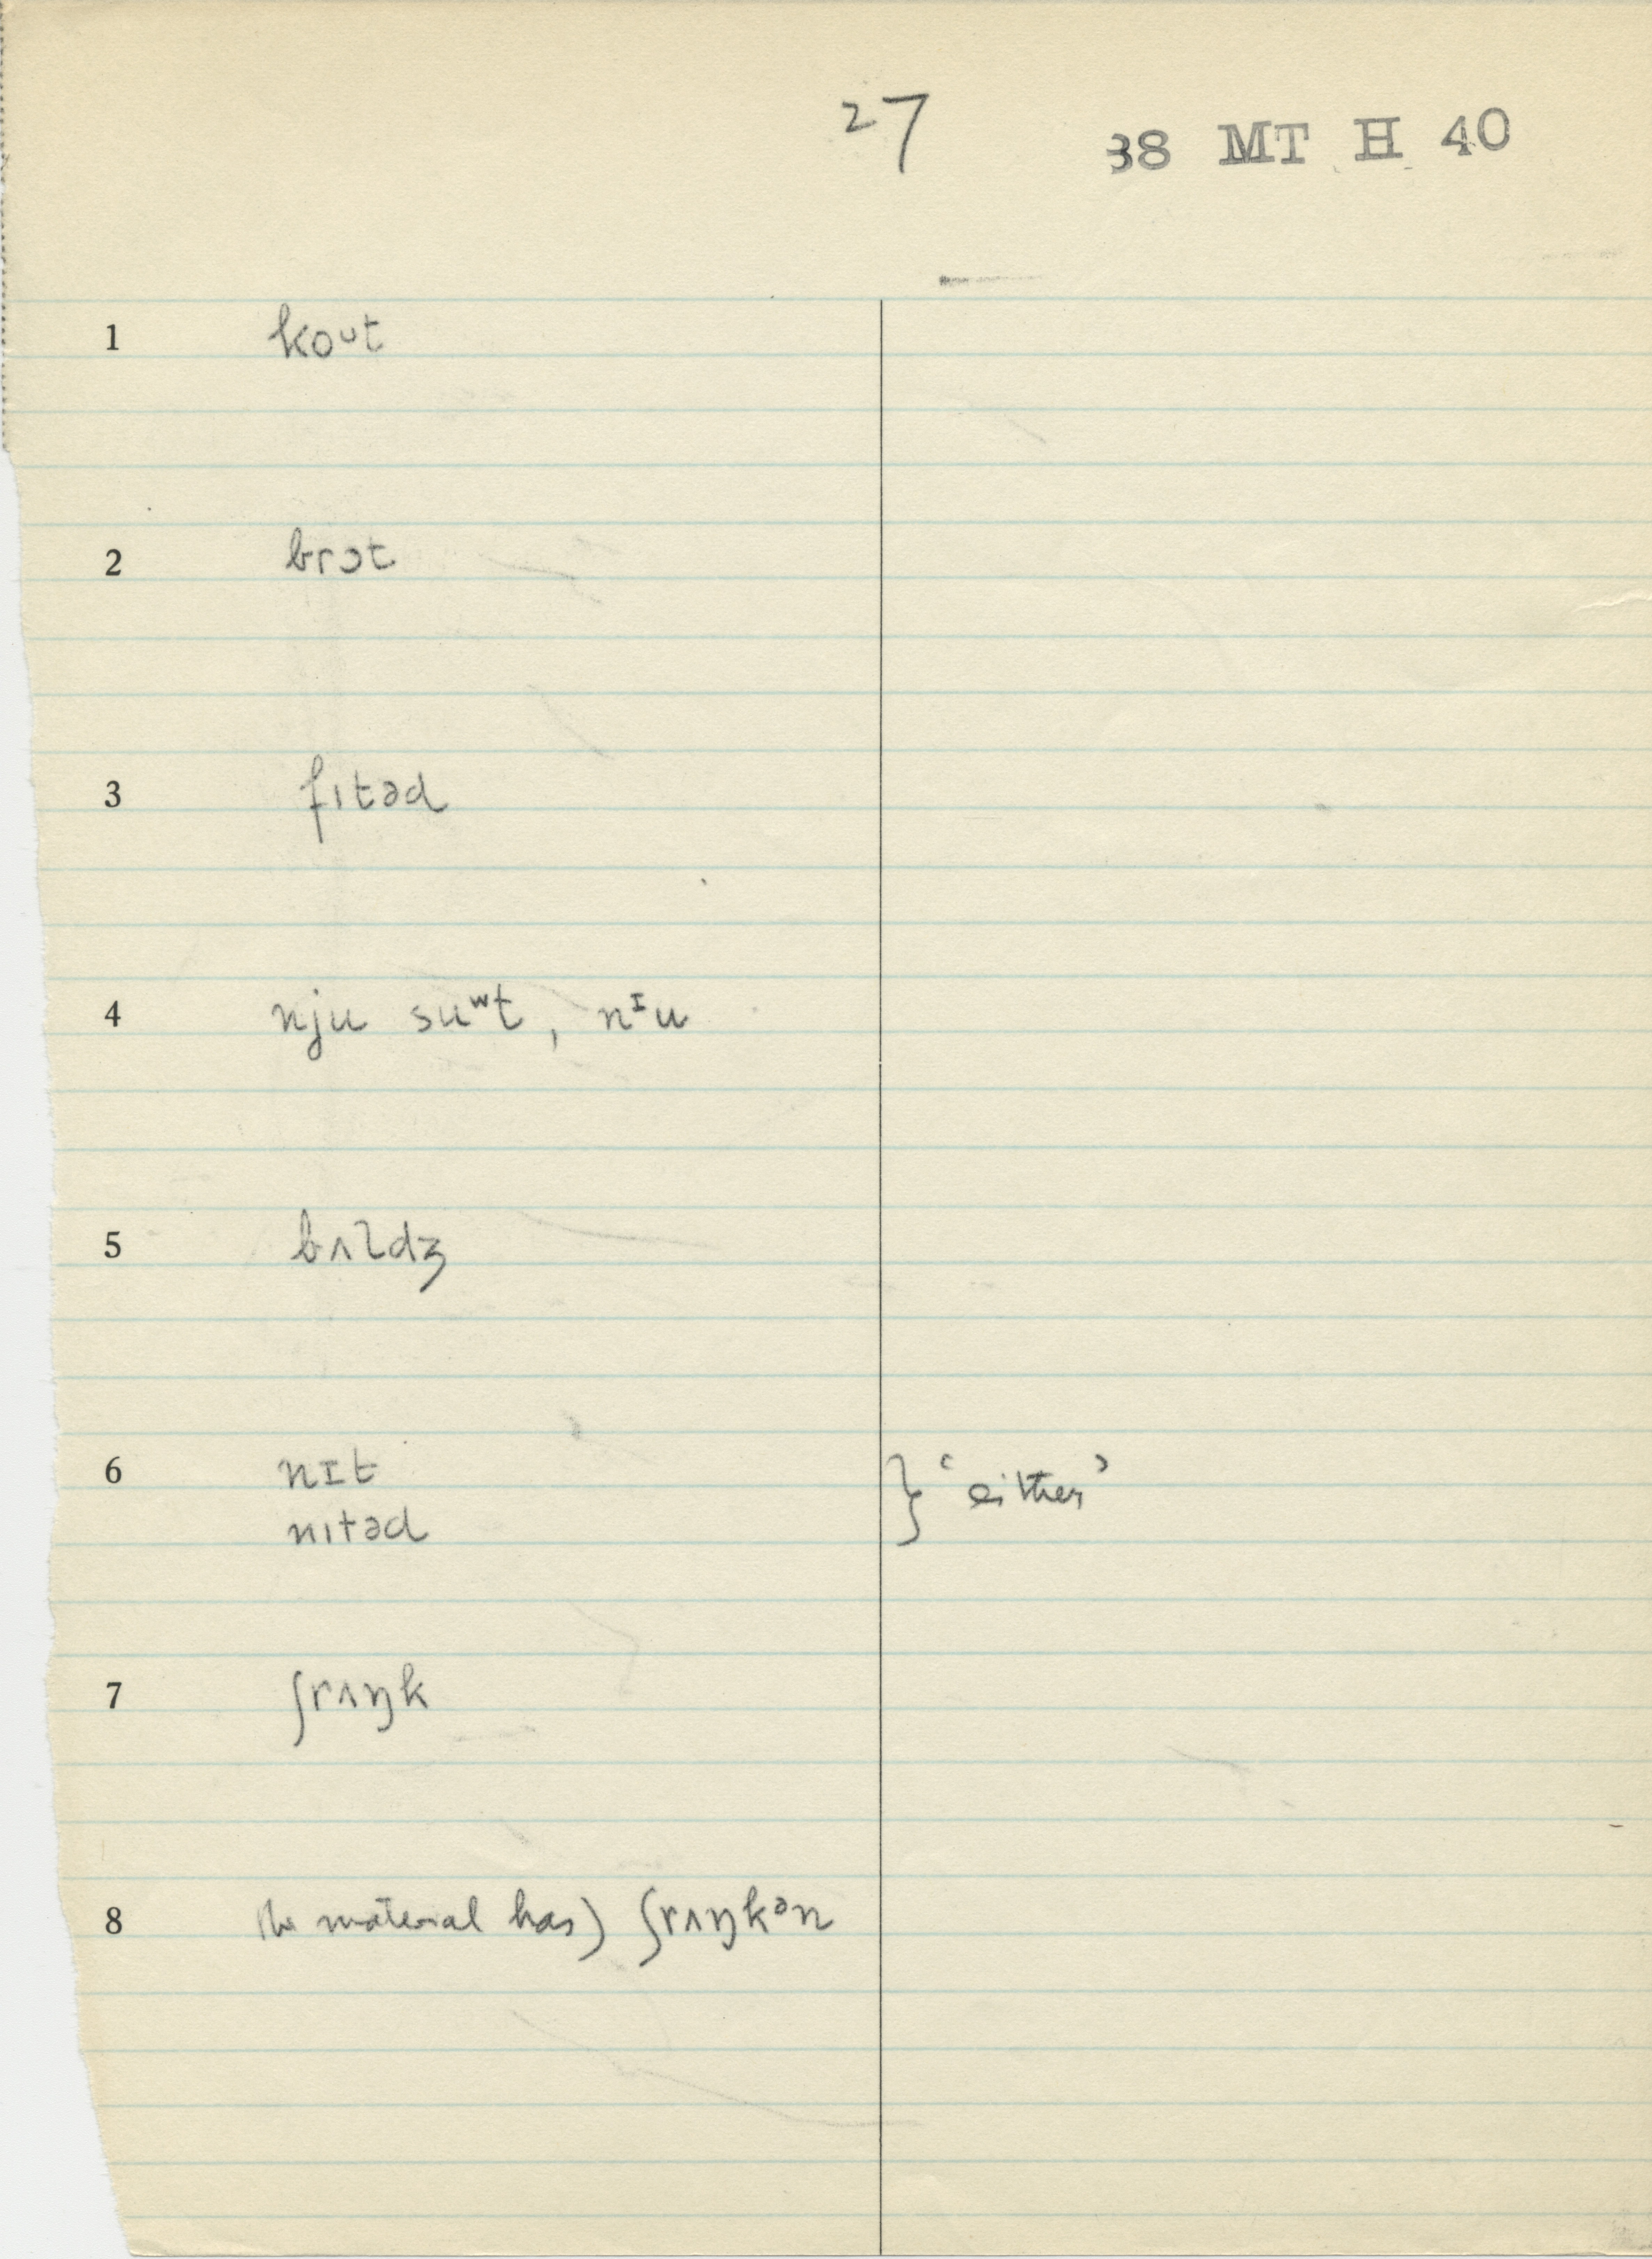 27 38 MT H 40
1 koᴜt
2 brɔt
3 fɪtəd
4 nju suʷt, nᴵu
5 bʌldʒ
6 nɪt } ‘either’
nɪtəd
7 ʃrʌŋk
8 the material has) ʃrʌŋkᵊn